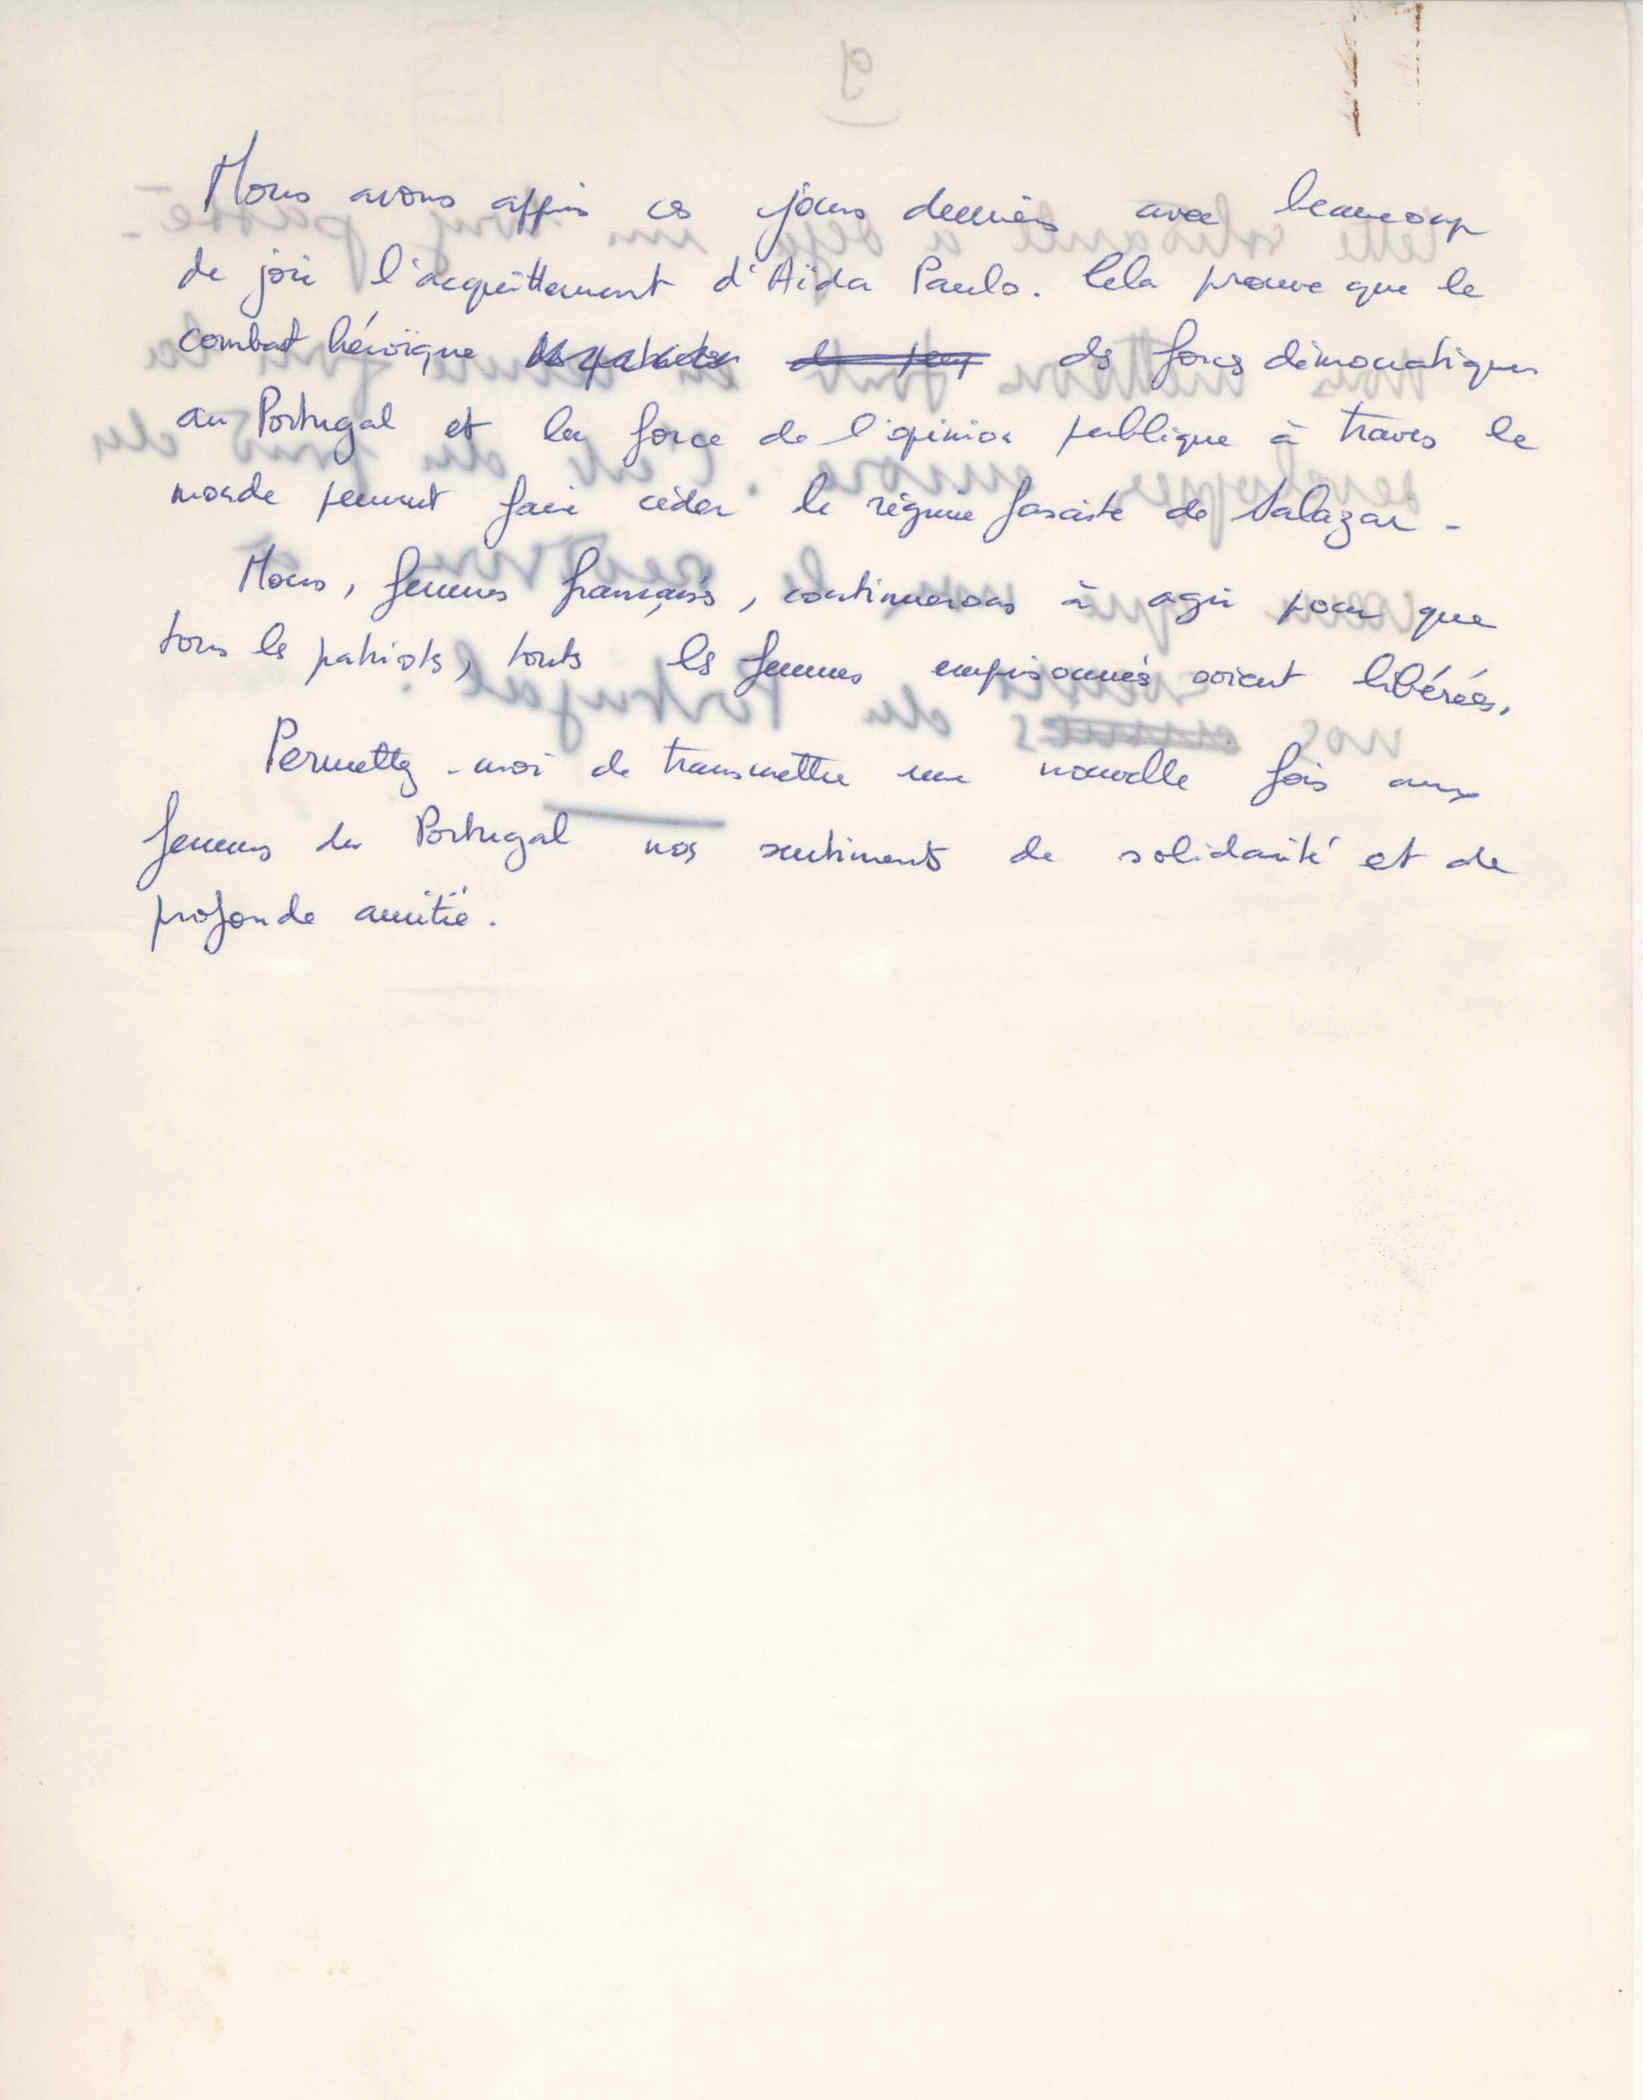 Nous avons appris ces jours derniers avec beaucoup
de joie l'acquittement d'Aïda Paulo. Cela prouve que le
combat héroïque des patriotes du peup des forces démocratiques
au Portugal et la force de l'opinion publique à travers le
monde peuvent faire céder le régime fasciste de Salazar -
Nous, femmes françaises, continuerons à agir pour que
tous les patriotes, toutes les femmes emprisonnées soient libérées.
Permettez-moi de transmettre une nouvelle fois aux
femmes du Portugal nos sentiments de solidarité et de
profonde amitié.